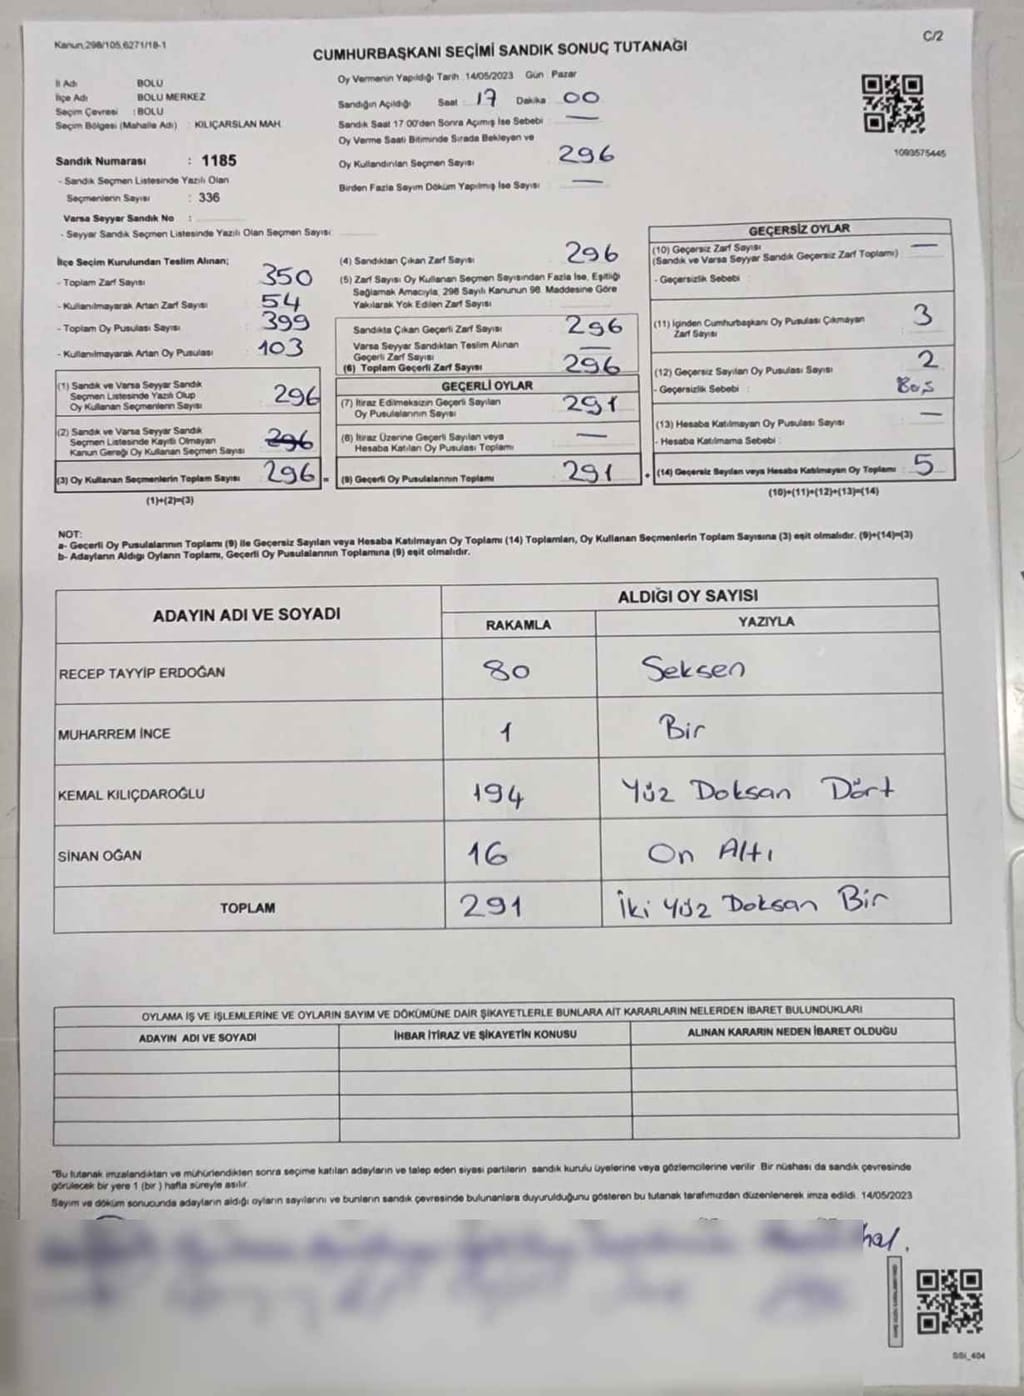 Kanun;298/105,6271/18-1
C/2
CUMHURBAŞKANI SEÇİMİ SANDIK SONUÇ TUTANAĞI
İl Adı BOLU
İlçe Adı BOLU MERKEZ
Seçim Çevresi : BOLU
Seçim Bölgesi (Mahalle Adı) : KILIÇARSLAN MAH.
Sandık Numarası : 1185
- Sandık Seçmen Listesinde Yazılı Olan
Seçmenlerin Sayısı : 336
Varsa Seyyar Sandık No :
- Seyyar Sandık Seçmen Listesinde Yazılı Olan Seçmen Sayısı:
Oy Vermenin Yapıldığı Tarih :14/05/2023 Gün : Pazar
Sandığın Açıldığı Saat : 17 Dakika : 00
Sandık Saat 17.00'den Sonra Açımış İse Sebebi : —
Oy Verme Saati Bitiminde Sırada Bekleyen ve
Oy Kullandırılan Seçmen Sayısı : 296
Birden Fazla Sayım Döküm Yapılmış İse Sayısı : —
1093575445
İlçe Seçim Kurulundan Teslim Alınan;
- Toplam Zarf Sayısı : 350
- Kullanılmayarak Artan Zarf Sayısı : 54
- Toplam Oy Pusulası Sayısı : 399
- Kullanılmayarak Artan Oy Pusulası : 103
(1) Sandık ve Varsa Seyyar Sandık
Seçmen Listesinde Yazılı Olup
Oy Kullanan Seçmenlerin Sayısı 296
(2) Sandık ve Varsa Seyyar Sandık
Seçmen Listesinde Kayıtlı Olmayan
Kanun Gereği Oy Kullanan Seçmen Sayısı 296
(3) Oy Kullanan Seçmenlerin Toplam Sayısı 296 =
(1)+(2)=(3)
(4) Sandıktan Çıkan Zarf Sayısı : 296
(5) Zarf Sayısı Oy Kullanan Seçmen Sayısından Fazla İse, Eşitliği
Sağlamak Amacıyla, 298 Sayılı Kanunun 98. Maddesine Göre
Yakılarak Yok Edilen Zarf Sayısı :
Sandıkta Çıkan Geçerli Zarf Sayısı : 296
Varsa Seyyar Sandıktan Teslim Alınan
Geçerli Zarf Sayısı : —
(6) Toplam Geçerli Zarf Sayısı : 296
GEÇERLİ OYLAR
(7) İtiraz Edilmeksizin Geçerli Sayılan
Oy Pusulalarının Sayısı : 291
(8) İtiraz Üzerine Geçerli Sayılan veya
Hesaba Katılan Oy Pusulası Toplamı : —
(9) Geçerli Oy Pusulalarının Toplamı : 291 +
GEÇERSİZ OYLAR
(10) Geçersiz Zarf Sayısı
(Sandık ve Varsa Seyyar Sandık Geçersiz Zarf Toplamı) : —
- Geçersizlik Sebebi :
(11) İçinden Cumhurbaşkanı Oy Pusulası Çıkmayan
Zarf Sayısı : 3
(12) Geçersiz Sayılan Oy Pusulası Sayısı : 2
- Geçersizlik Sebebi : Boş
(13) Hesaba Katılmayan Oy Pusulası Sayısı : —
- Hesaba Katılmama Sebebi :
(14) Geçersiz Sayılan veya Hesaba Katılmayan Oy Toplamı : 5
(10)+(11)+(12)+(13)=(14)
NOT:
a- Geçerli Oy Pusulalarının Toplamı (9) ile Geçersiz Sayılan veya Hesaba Katılmayan Oy Toplamı (14) Toplamları, Oy Kullanan Seçmenlerin Toplam Sayısına (3) eşit olmalıdır. (9)+(14)=(3)
b- Adayların Aldığı Oyların Toplamı, Geçerli Oy Pusulalarının Toplamına (9) eşit olmalıdır.
ADAYIN ADI VE SOYADI
ALDIĞI OY SAYISI
RAKAMLA YAZIYLA
RECEP TAYYİP ERDOĞAN 80 Seksen
MUHARREM İNCE 1 Bir
KEMAL KILIÇDAROĞLU 194 Yüz Doksan Dört
SİNAN OĞAN 16 On Altı
TOPLAM 291 İki Yüz Doksan Bir
OYLAMA İŞ VE İŞLEMLERİNE VE OYLARIN SAYIM VE DÖKÜMÜNE DAİR ŞİKAYETLERLE BUNLARA AİT KARARLARIN NELERDEN İBARET BULUNDUKLARI
ADAYIN ADI VE SOYADI İHBAR İTİRAZ VE ŞİKAYETİN KONUSU ALINAN KARARIN NEDEN İBARET OLDUĞU
"Bu tutanak imzalandıktan ve mühürlendikten sonra seçime katılan adayların ve talep eden siyasi partilerin sandık kurulu üyelerine veya gözlemcilerine verilir. Bir nüshası da sandık çevresinde
görülecek bir yere 1 (bir ) hafta süreyle asılır.
Sayım ve döküm sonucunda adayların aldığı oyların sayılarını ve bunların sandık çevresinde bulunanlara duyurulduğunu gösteren bu tutanak tarafımızdan düzenlenerek imza edildi. 14/05/2023
SSI_404